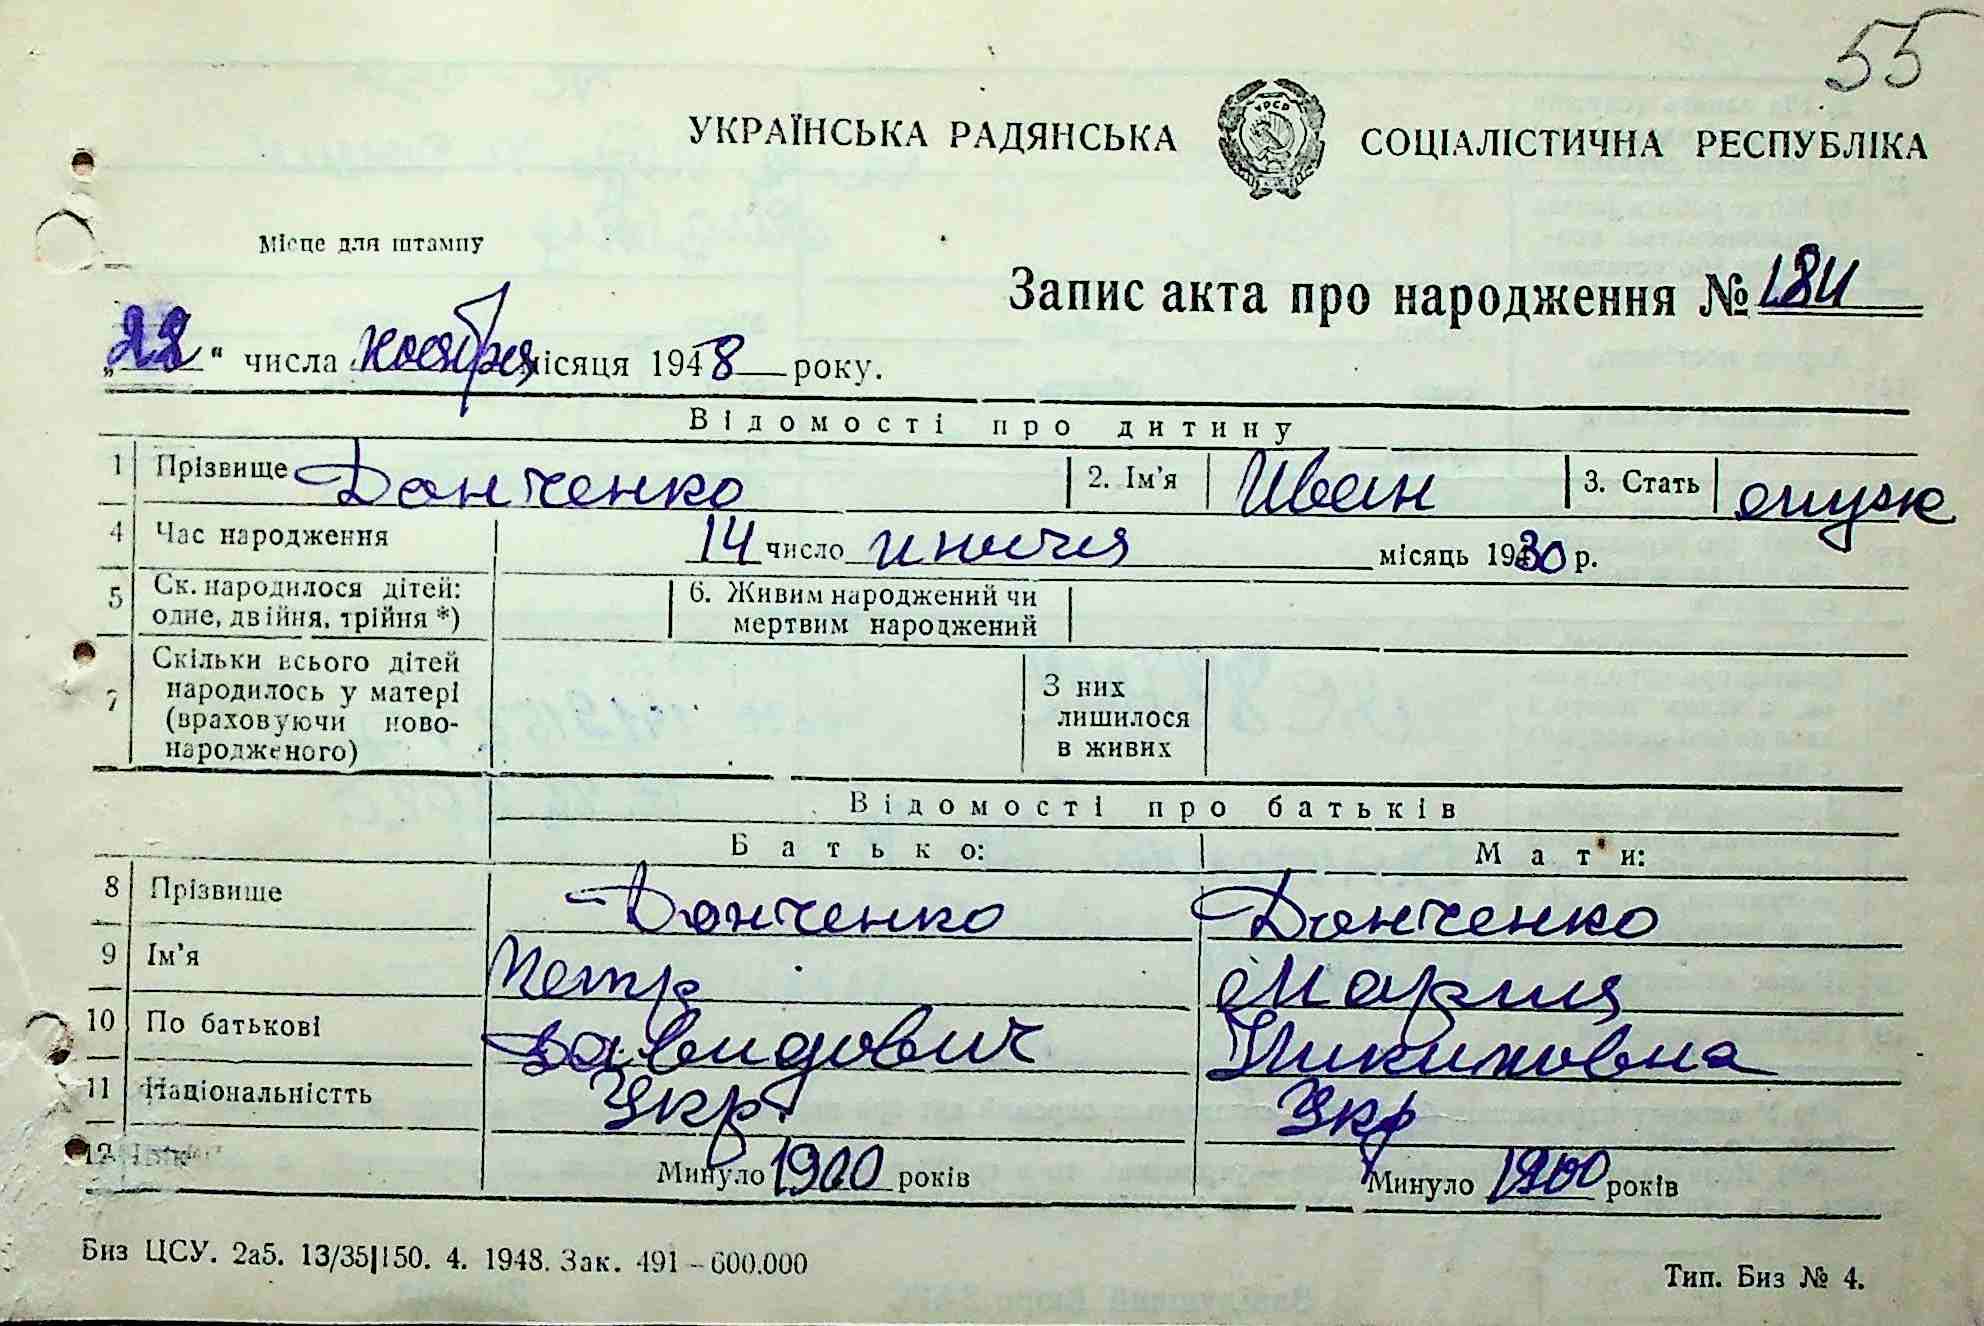 55
УКРАЇНСЬКА РАДЯНСЬКА СОЦІАЛІСТИЧНА РЕСПУБЛІКА
УРСР
Місце для штампу
Запис акта про народження № 184
„22“ числа ноября місяця 1948 року.
Відомості про дитину
1 Прізвище Донченко 2. Ім'я Иван 3. Стать муж
4 Час народження 14 число июля місяць 1930 р.
5 Ск. народилося дітей: одне, двійня, трійня *) 6. Живим народжений чи мертвим народжений
7 Скільки всього дітей народилось у матері (враховуючи новонародженого) З них лишилося в живих
Відомості про батьків
Батько: Мати:
8 Прізвище Донченко Донченко
9 Ім'я Петр Мария
10 По батькові Давидович Никитовна
11 Національністть Укр. Укр
12 Вік Минуло 1900 років Минуло 1900 років
Биз ЦСУ. 2а5. 13/35|150. 4. 1948. Зак. 491 – 600.000
Тип. Биз № 4.